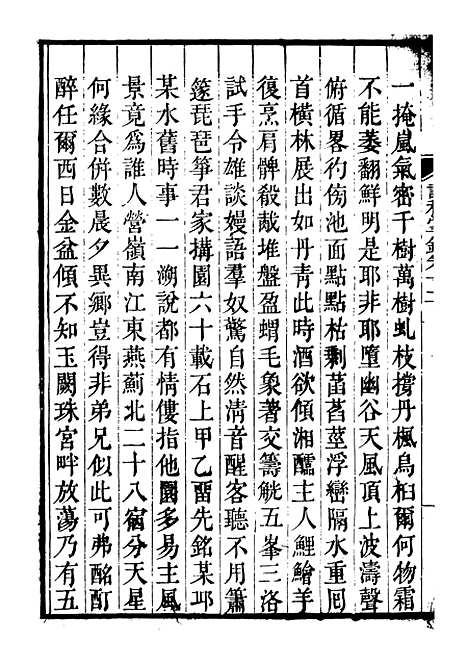 一掩嵐氣密千樹萬樹虬枝撐丹楓烏桕爾何物霜
不能萎翻鮮明是耶非耶墮幽谷天風頂上波濤聲
俯循畧彴傍池面點點枯剩菡萏莖浮巒隔水重囘
首橫林展出如丹青此時酒欲傾湘醽主人鯉鱠羊
復烹肩髀殽胾堆盤盈蝟毛象著交籌觥五峯三洛
試手令雄談嫚語羣奴驚自然淸音醒客聽不用簫
篴琵琶箏君家搆園六十載石上甲乙畱先銘某邱
某水舊時事一一溯說都有情僂指他園多易主風
景竟爲誰人營嶺南江東燕薊北二十八宿分天星
何緣合併數晨夕異鄉豈得非弟兄似此可弗酩酊
醉任爾西日金盆傾不知玉闕珠宮畔放蕩乃有五